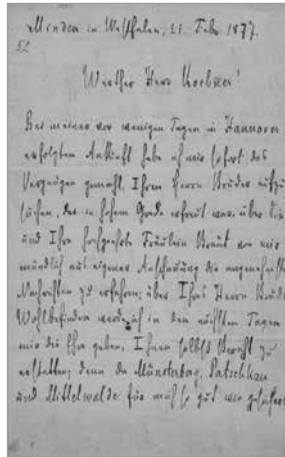 Minden in Westfalen, 21. Febr. 1877.
Werther Herr Koebner!
Bei meiner vor wenigen Tagen in Hannover
erfolgten Ankunft habe ich mir sofort das
Vergnügen gemacht, Ihren Herrn Bruder aufzu
suchen, der in hohem Grade erfreut war, über Sie
und Ihre hochgeehrte Fräulein Braut von mir
mündlich aus eigener Anschauung die angenehmsten
Nachrichten zu erfahren; über Ihres Herrn Bruders
Wohlbefinden werde ich in den nächsten Tagen
mir die Ehre geben, Ihnen selbst Bericht zu
erstatten; denn da Münsterberg, Patschkau
und Mittelwalde für mich so gut wie